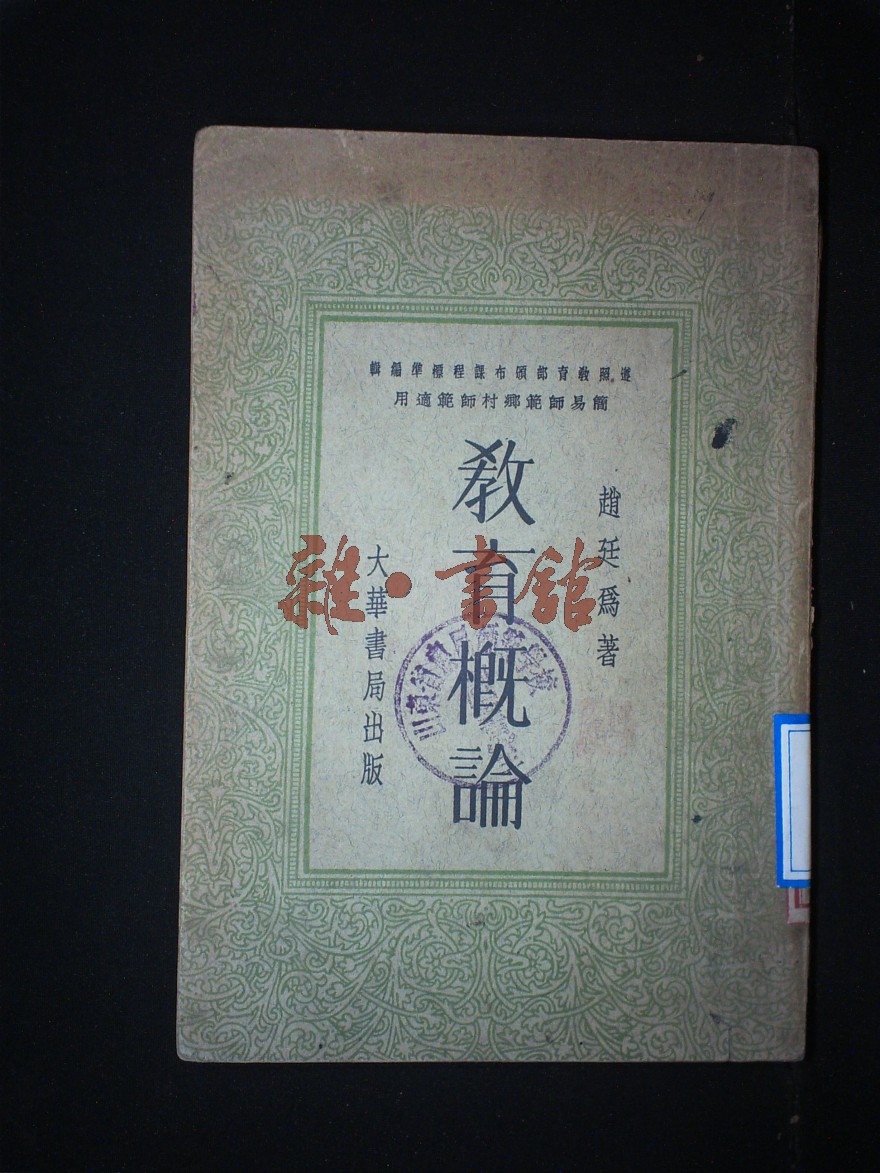 遵照教育部頒布課程標準編輯
簡易師範鄉村師範適用
趙廷為著
教育概論
大華書局出版
雜·書館